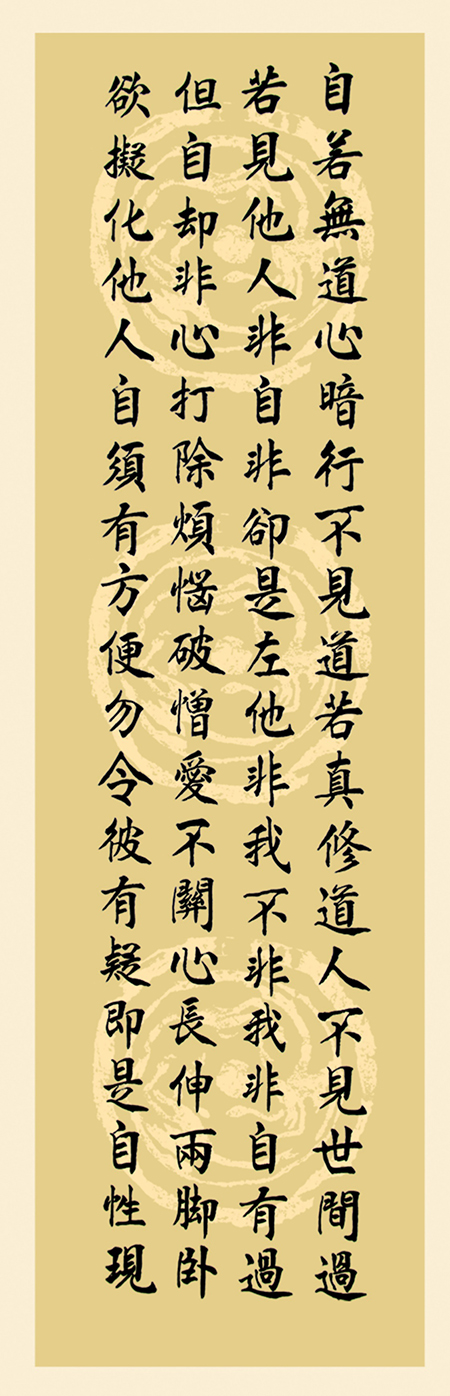 自若無道心暗行不見道若真修道人不見世間過
若見他人非自非卻是左他非我不非我非自有過
但自却非心打除煩惱破憎愛不關心長伸兩脚卧
欲擬化他人自須有方便勿令彼有疑即是自性現